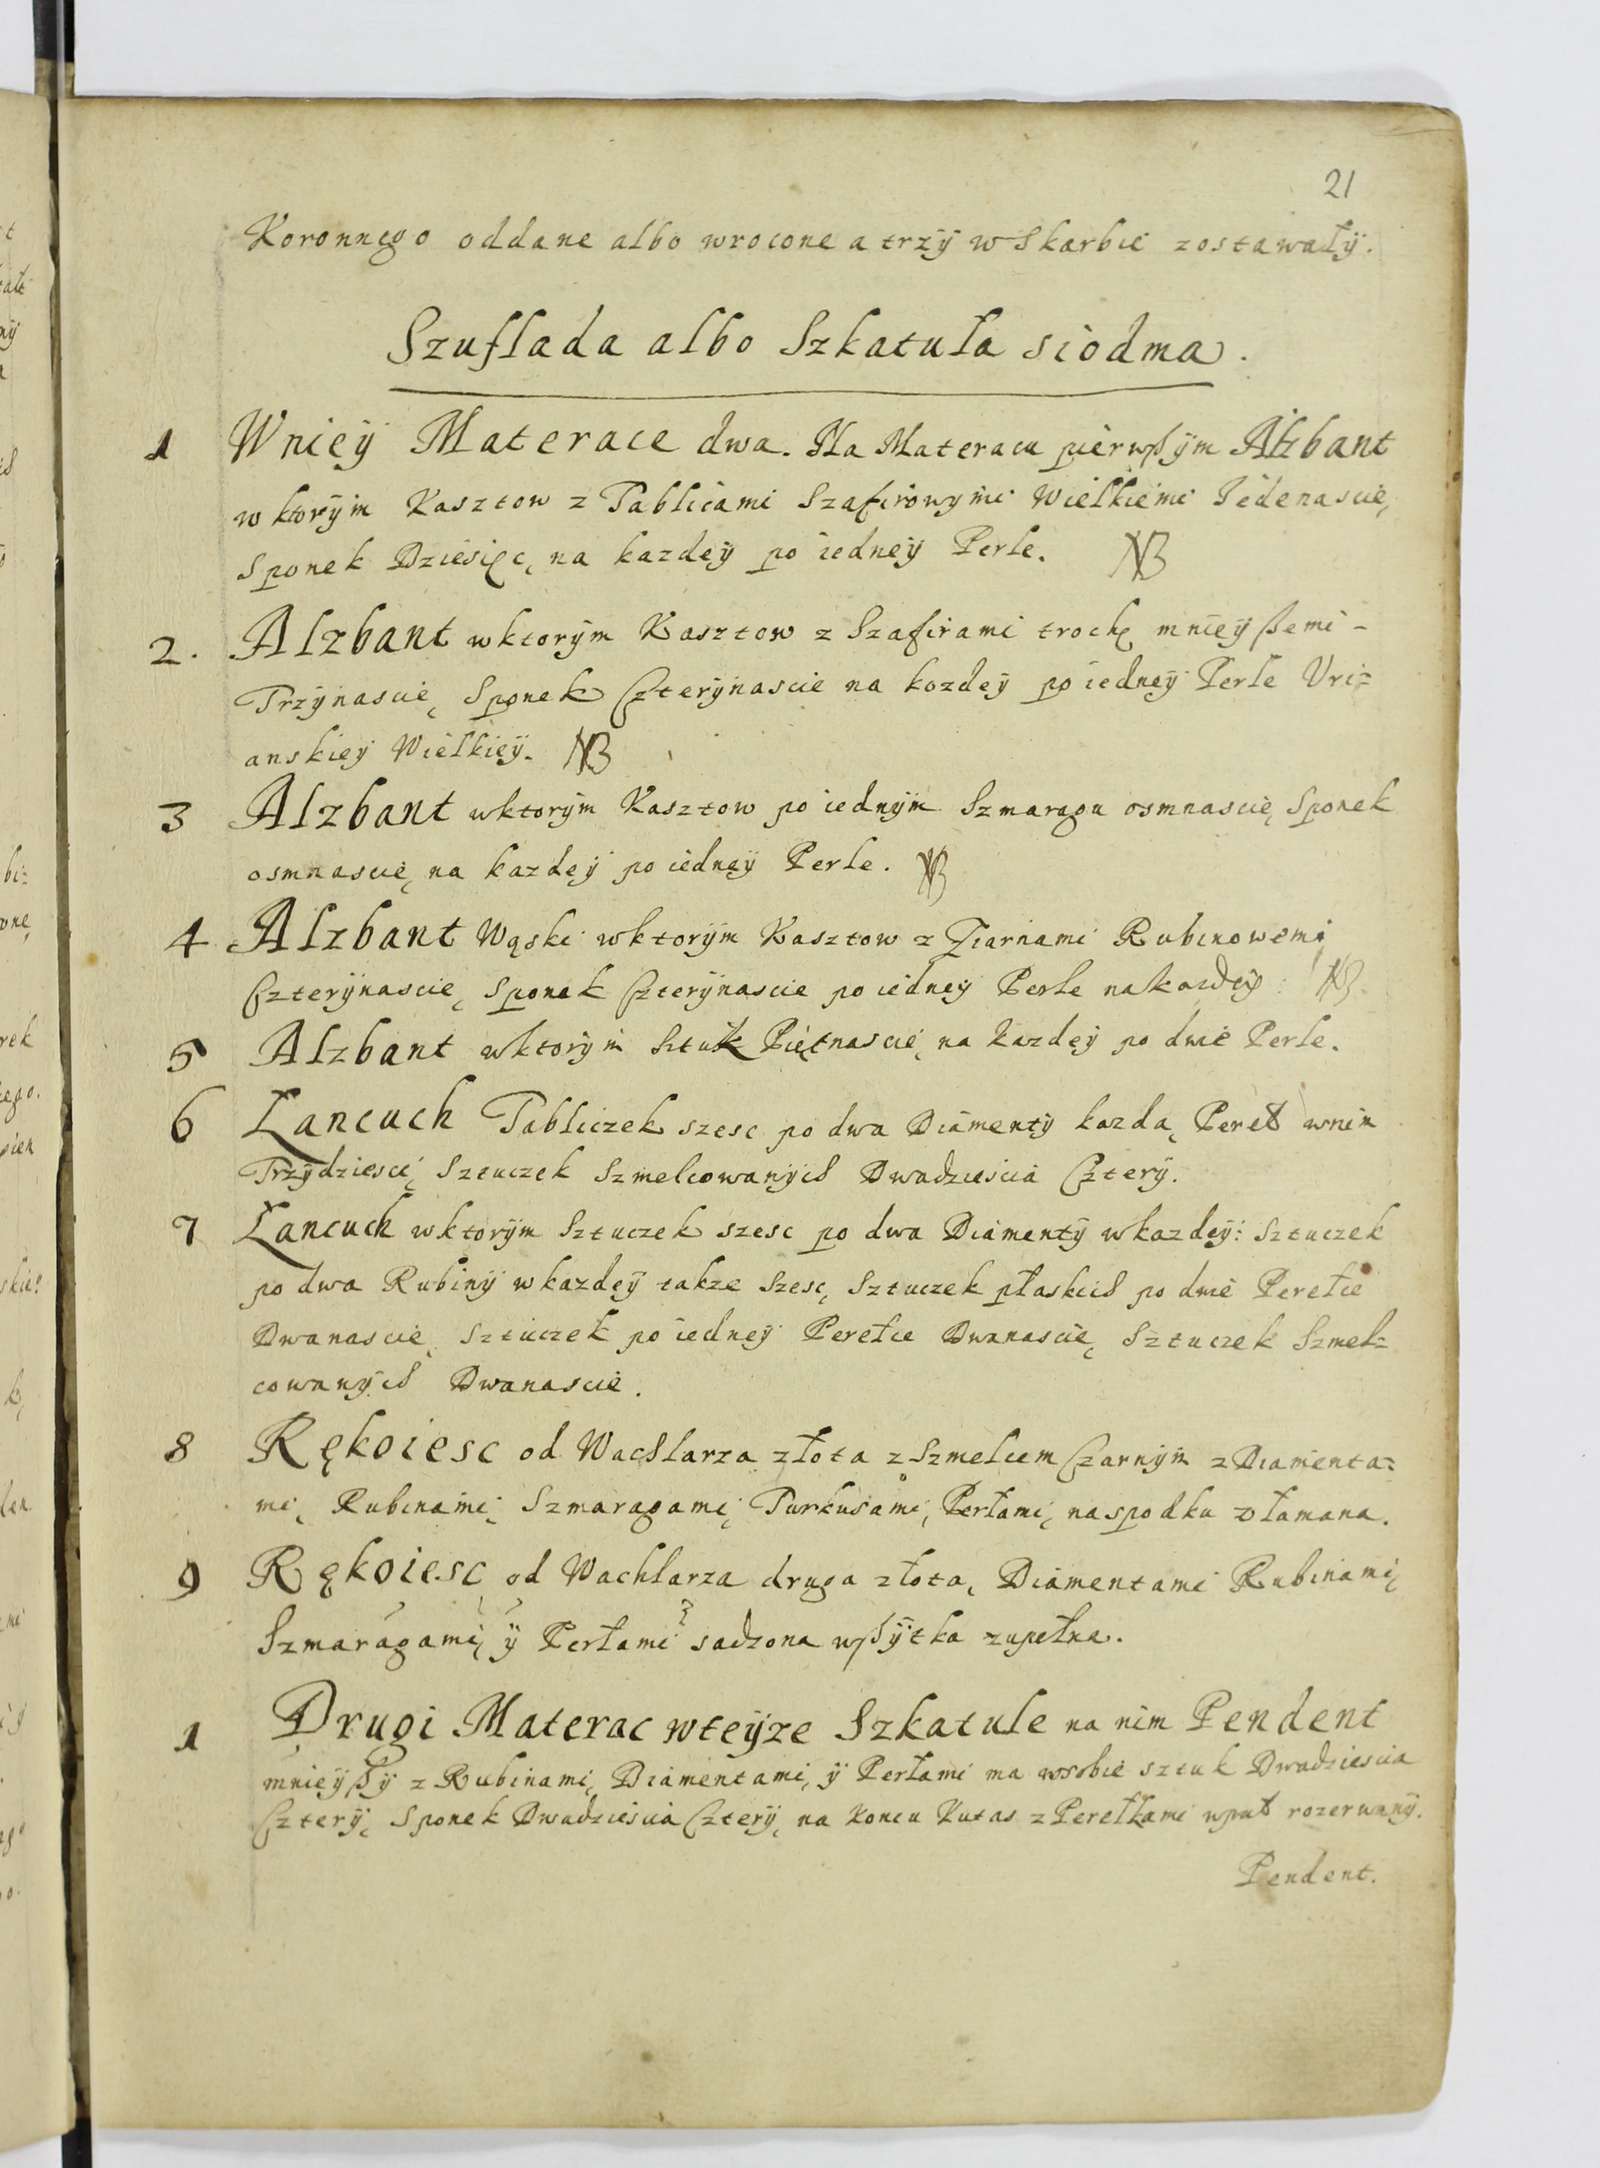 21
Koronnego oddane albo wrocone a trzÿ w Skarbie zostawałÿ.
Szuflada albo Szkatuła siodma.
1 Wnieÿ Materace dwa. Na Materacu pierwßÿm Alzbant
w ktorÿm Kasztow z Tablicami Szafirowÿmi Wielkiemi Jedenascie,
Sponek Dziesięc, na kazdeÿ po iedneÿ Perle. NB
2. Alzbant wktorÿm Kasztow z Szafirami trochę mnieÿßemi -
Trzÿnascie, Sponek Czterÿnascie na kozdeÿ po iedneÿ Perle Uri=
anskieÿ Wielkieÿ. NB
3 Alzbant wktorÿm Kasztow po iednÿm Szmaragu osmnascie, Sponek
osmnascie, na kazdeÿ po iedneÿ Perle. NB
4 Alzbant Wąski wktorÿm Kasztow z Ziarnami Rubinowemi,
Czterÿnascie, Sponek Czterÿnascie po iedneÿ Perle nakozdeÿ: NB.
5 Alzbant wktorÿm Sztuk Piętnascie, na kazdeÿ po dwie Perle.
6 Lancuch Tabliczek szesc po dwa Diamentÿ kazda, Pereł wnim
Trzÿdziesci, Sztuczek Szmelcowanÿch Dwadziescia Czterÿ.
7 Lancuch wktorÿm Sztuczek szesc po dwa Diamentÿ wkazdeÿ: Sztuczek
po dwa Rubinÿ wkazdeÿ takze Szesc, Sztuczek płaskich po dwie Perełce
Dwanascie, Sztuczek po iedneÿ Perełce Dwanascie, Sztuczek Szmel=
cowanÿch Dwanascie.
8 Rękoiesc od Wachlarza złota z Szmelcem Czarnÿm z Diamenta=
mi, Rubinami, Szmaragami, Turkusami, Perłami, naspodku złamana.
9 Rękoiesc od Wachlarza druga złota, Diamentami Rubinami,
Szmaragami, ÿ Perłami sadzona wßÿtka zupełna.
1 Drugi Materac wteÿze Szkatule na nim Pendent
mnieÿßÿ z Rubinami, Diamentami, ÿ Perłami ma wsobie sztuk Dwadziescia
Czterÿ, Sponek Dwadziescia Czterÿ, na Koncu Kutas z Perełkami wpuł rozerwanÿ.
Pendent.